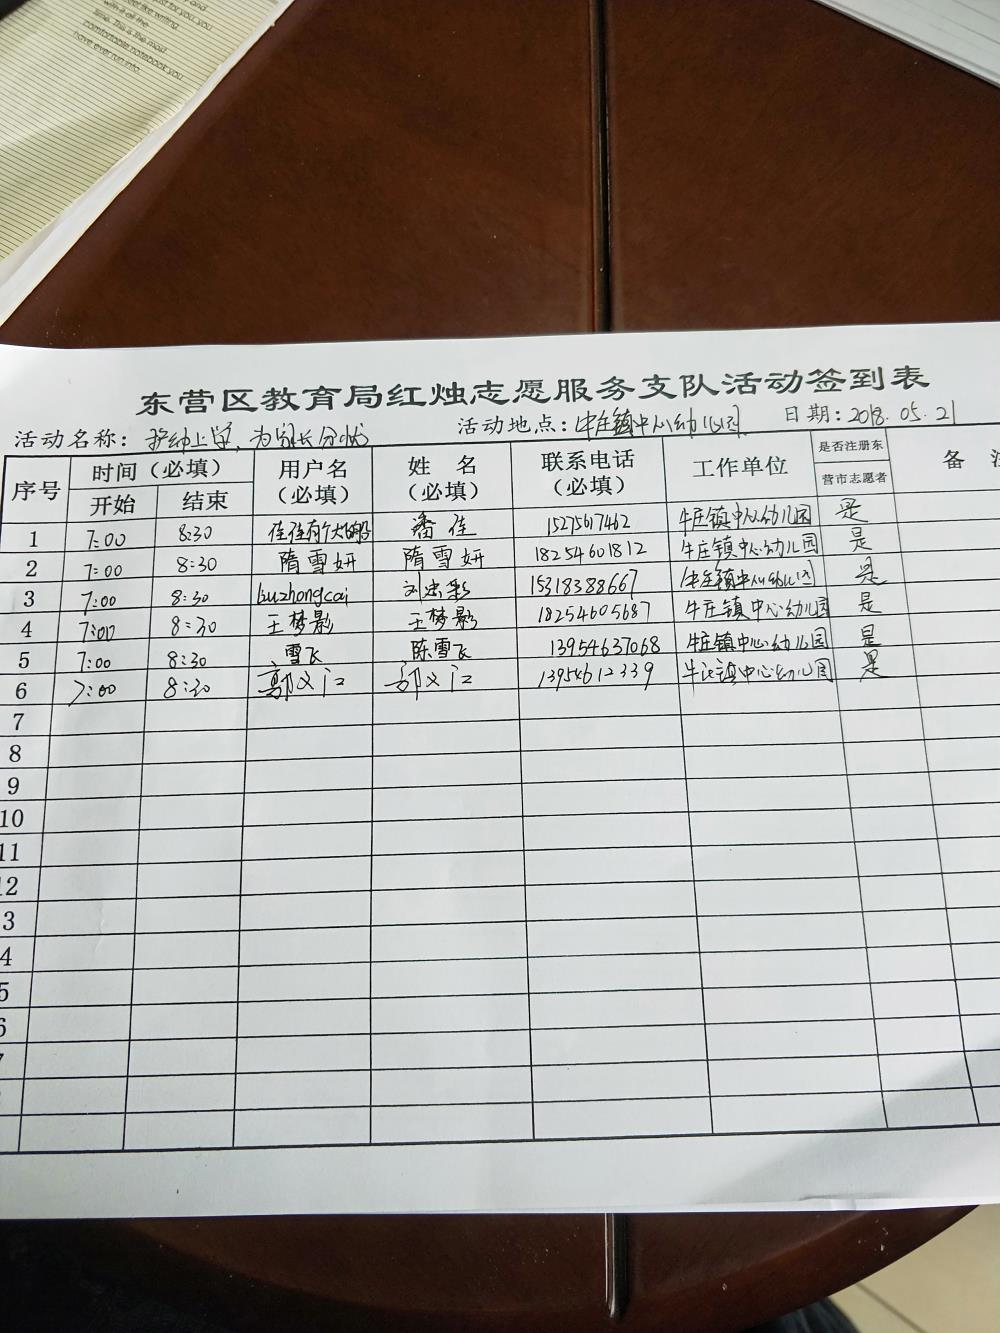 just for you. you
feel like writing
with it all the
time. This is the most
comfortable notebook you
have ever run into.
东营区教育局红烛志愿服务支队活动签到表
活动名称：护幼上学，为家长分忧 活动地点：牛庄镇中心幼儿园 日期：2018.05.21
序号 时间（必填） 用户名（必填） 姓 名（必填） 联系电话（必填） 工作单位 是否注册东营市志愿者 备
开始 结束
1 7:00 8:30 佳佳有个大 潘佳 15275617462 牛庄镇中心幼儿园 是
2 7:00 8:30 隋雪妍 隋雪妍 18254601812 牛庄镇中心幼儿园 是
3 7:00 8:30 liuzhongcai 刘忠彩 15318388667 牛庄镇中心幼儿园 是
4 7:00 8:30 王梦影 王梦影 18254605687 牛庄镇中心幼儿园 是
5 7:00 8:30 雪飞 陈雪飞 13954637068 牛庄镇中心幼儿园 是
6 7:00 8:30 郭义江 郭义江 13954612339 牛庄镇中心幼儿园 是
7
8
9
10
11
12
3
4
5
6